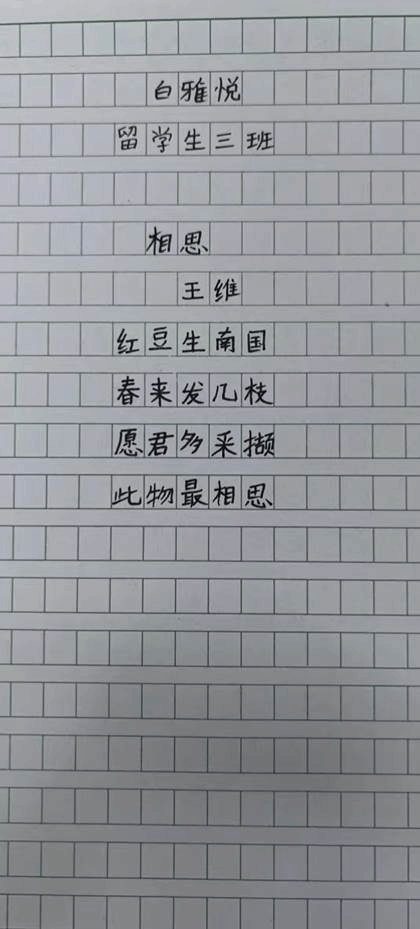 白雅悦
留学生三班
相思
王维
红豆生南国
春来发几枝
愿君多采撷
此物最相思